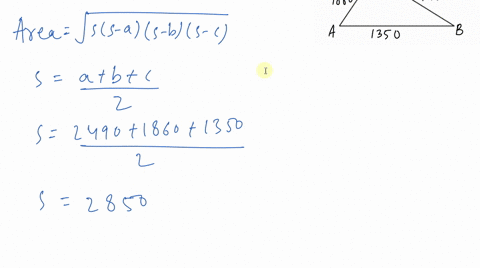 Area = √s(s-a)(s-b)(s-c)
s = a+b+c
2
s = 2490+1860+1350
2
s = 2850
A 1350 B